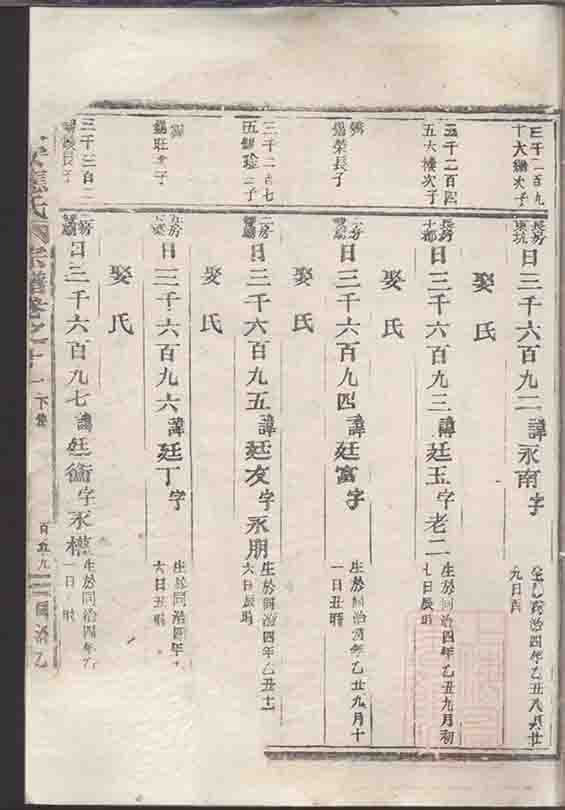 三千一百九
十大繼次子
長房
東坑
日三千六百九二諱永南字
生於同治四年乙丑八月廿
九日酉
娶氏
三千二百四
五大樓次子
長房
日三千六百九三諱廷玉字老二
生於同治四年乙丑九月初
七日辰時
娶氏
錫榮長子
日三千六百九四諱廷富字
生於同治四年乙丑九月十
一日丑時
娶氏
三千二百七
日三千六百九五諱廷友字永朋
生於同治四年乙丑十
六日辰時
娶氏
錫旺
子
日三千六百九六諱廷丁字
生於同治四年
六日丑時
娶氏
三千三百二
長子
日三千六百九七諱廷銜字永
生於同治四年乙
一日
時
氏
宗譜卷之十一下集
百五九